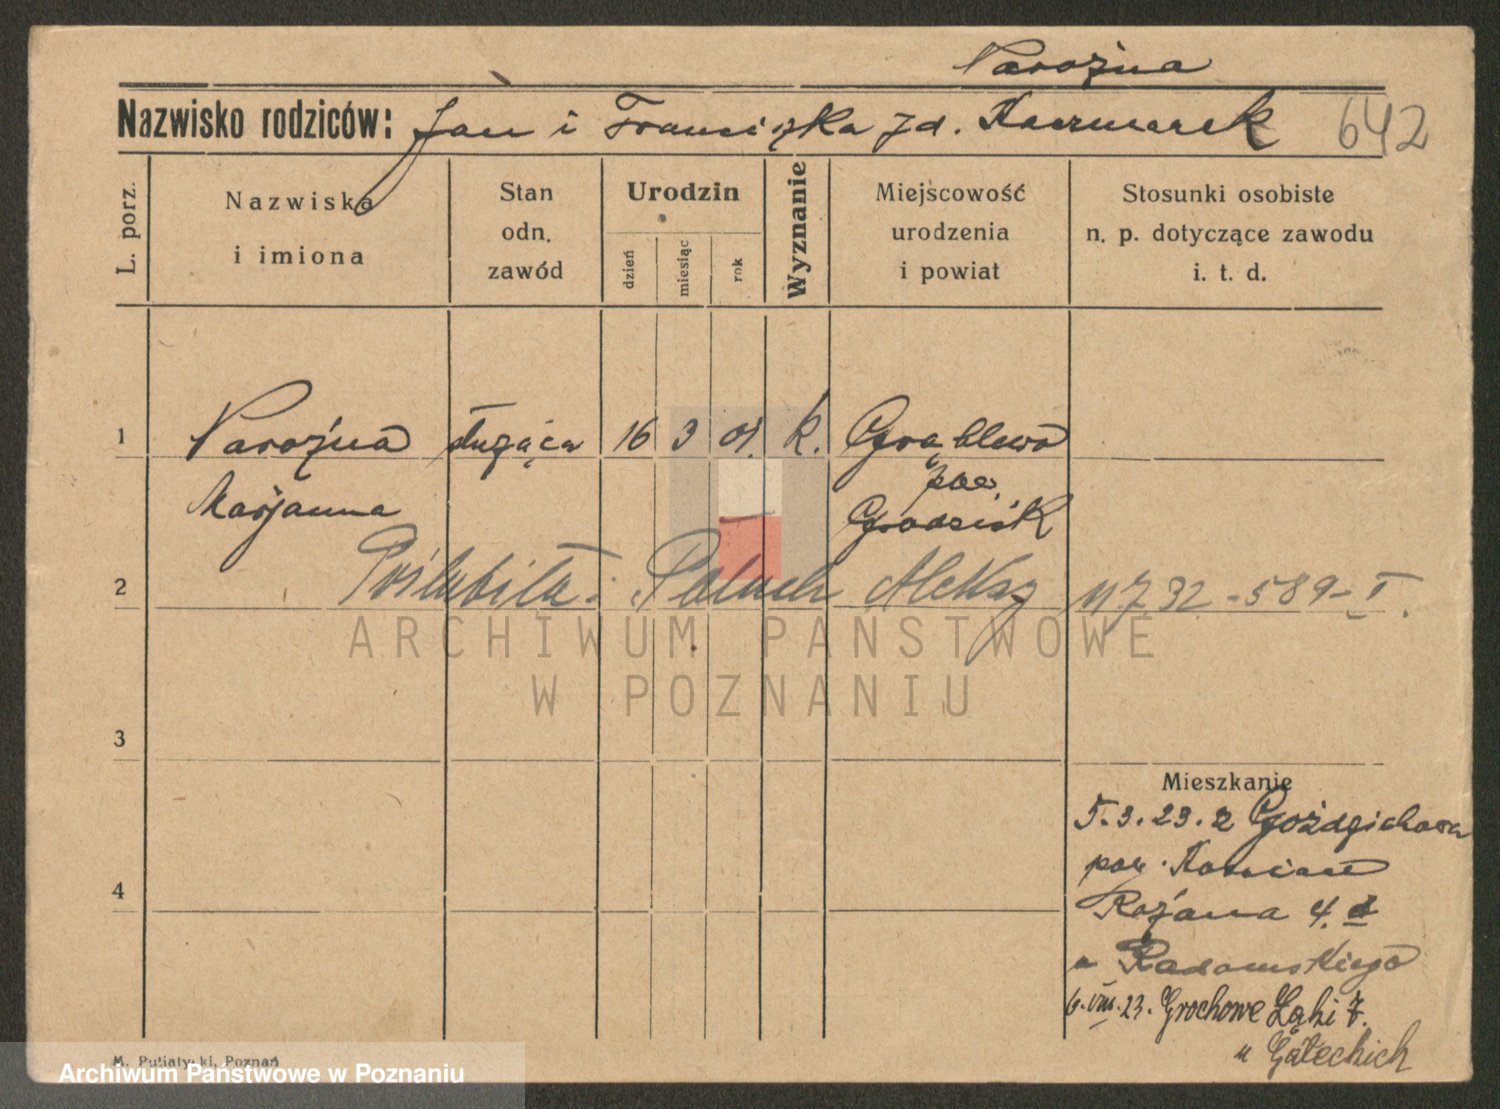 Narożna
Nazwisko rodziców: Jan i Franciszka zd. Kaczmarek 642
L. porz.
Nazwiska
i imiona
Stan
odn.
zawód
Urodzin
dzień
miesiąc
rok
Wyznanie
Miejscowość
urodzenia
i powiat
Stosunki osobiste
n. p. dotyczące zawodu
i. t. d.
1 Narożna służąca 16 3 01. k. Grąblewo
pow.
Marjanna Grodzisk
2 Poślubiła: Paluch Aleksy 11/7 32 - 589 - I.
3
Mieszkanie
5.3.23. z Goździchowa
pow. Kościan
4
Różana 4. d
u Radomskiego
6.VIII.23. Grochowe Łąki 7.
u Gałeckich
M. Putiatycki, Poznań
ARCHIWUM PAŃSTWOWE
W POZNANIU
Archiwum Państwowe w Poznaniu